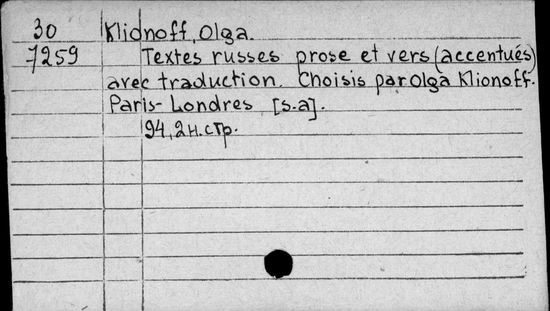 30 Klionoff, Olga.
7259 Textes russes prose et vers (accentués)
avec traduction. Choisis par Olga Klionoff.
Paris-Londres [s.a].
94, 2 н. стр.